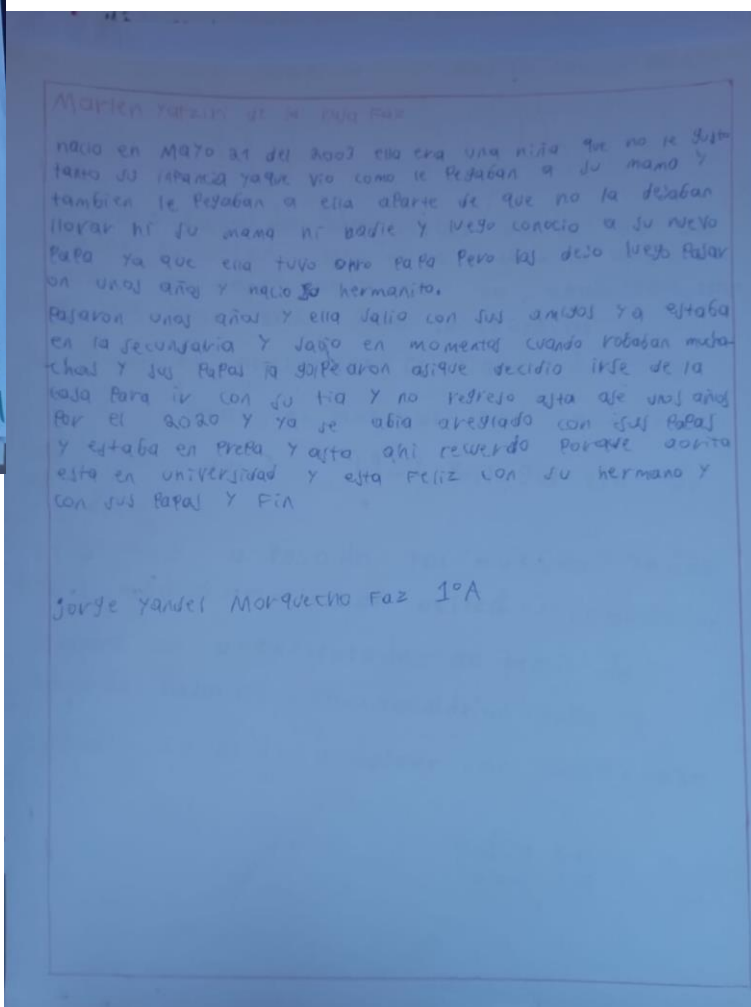 Marlen Yaraziri de la Faz
nacio en MAYO 21 del 2003 ella era una niña que no le gusto
tanto su infancia ya que vio como le Pegaban a su mama y
tambien le Pegaban a ella aParte de que no la dejaban
llorar ni su mama ni nadie y luego conocio a su nuevo
PaPa ya que ella tuvo otro PaPa Pero las dejo luego Pasar
on unos años y nacio su hermanito.
Pasaron unos años y ella salio con sus amigos ya estaba
en la secundaria y salio en momentos cuando robaban mucha
chas y sus PaPas la golPearon asique decidio irse de la
casa Para ir con su tia y no regreso asta ase unos años
Por el 2020 y ya se abia areglado con sus PaPas
y estaba en PrePa y asta ahi recuerdo Porque aorita
esta en universidad y esta Feliz con su hermano y
con sus PaPas y Fin
Jorge Yandel Morquecho Faz 1°A